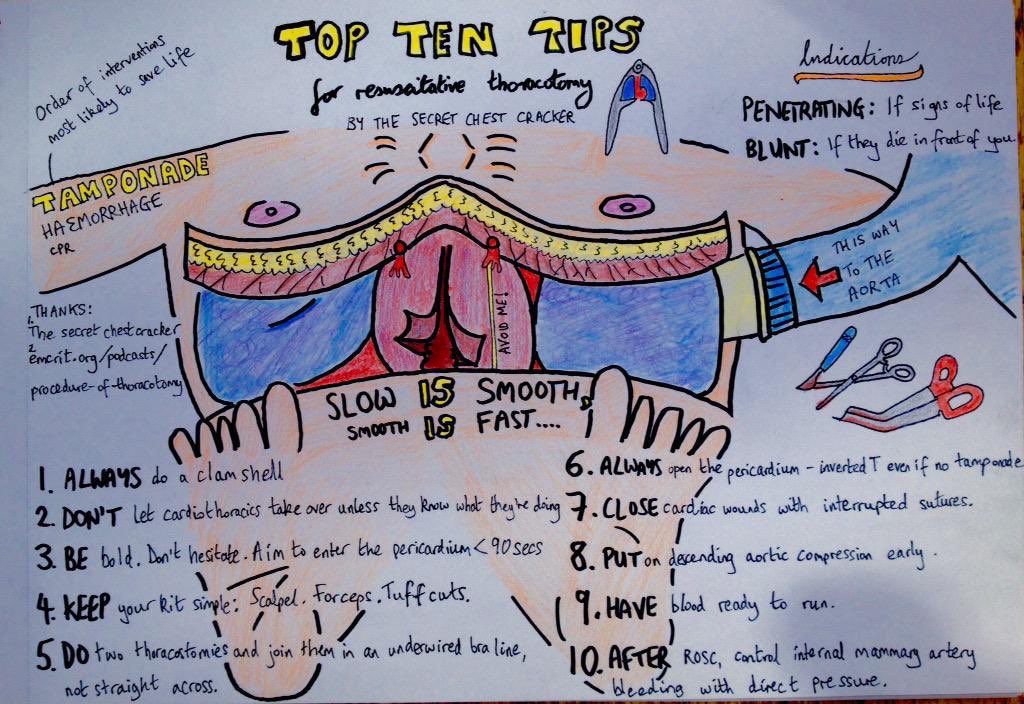 TOP TEN TIPS
for resuscitative thoracotomy
BY THE SECRET CHEST CRACKER
Order of interventions
most likely to save life
TAMPONADE
HAEMORRHAGE
CPR
Indications
PENETRATING: If signs of life
BLUNT: If they die in front of you.
THIS WAY
TO THE
AORTA
AVOID ME!
THANKS:
1. The secret chest cracker
2. emcrit.org/podcasts/
procedure-of-thoracotomy
SLOW IS SMOOTH,
SMOOTH IS FAST....
1. ALWAYS do a clamshell
2. DON'T let cardiothoracics take over unless they know what they're doing
3. BE bold. Don't hesitate. Aim to enter the pericardium < 90secs
4. KEEP your kit simple: Scalpel. Forceps. Tuff cuts.
5. DO two thoracostomies and join them in an underwired bra line,
not straight across.
6. ALWAYS open the pericardium - inverted T even if no tamponade
7. CLOSE cardiac wounds with interrupted sutures.
8. PUT on descending aortic compression early.
9. HAVE blood ready to run.
10. AFTER ROSC, control internal mammary artery
bleeding with direct pressure.